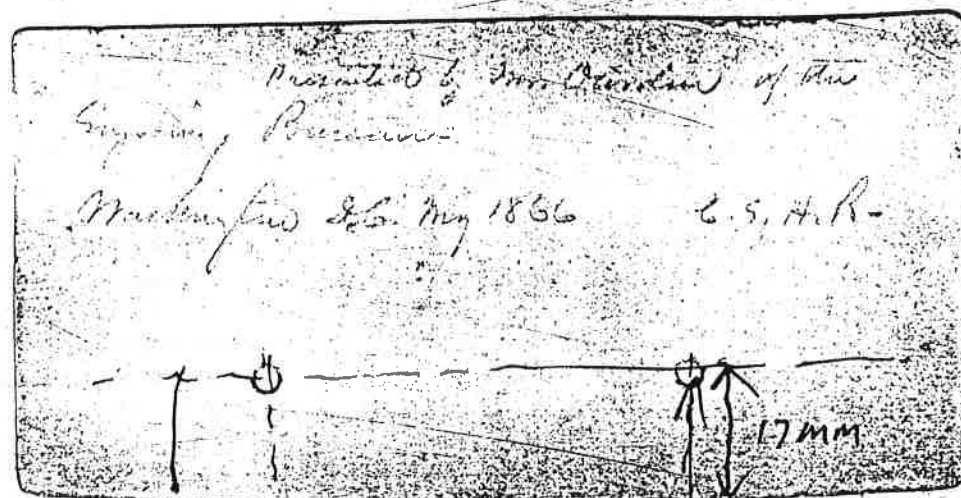 Presented by of the
Engraving Bureau
Washington D.C. May 1866 C. S. H. R-
17mm